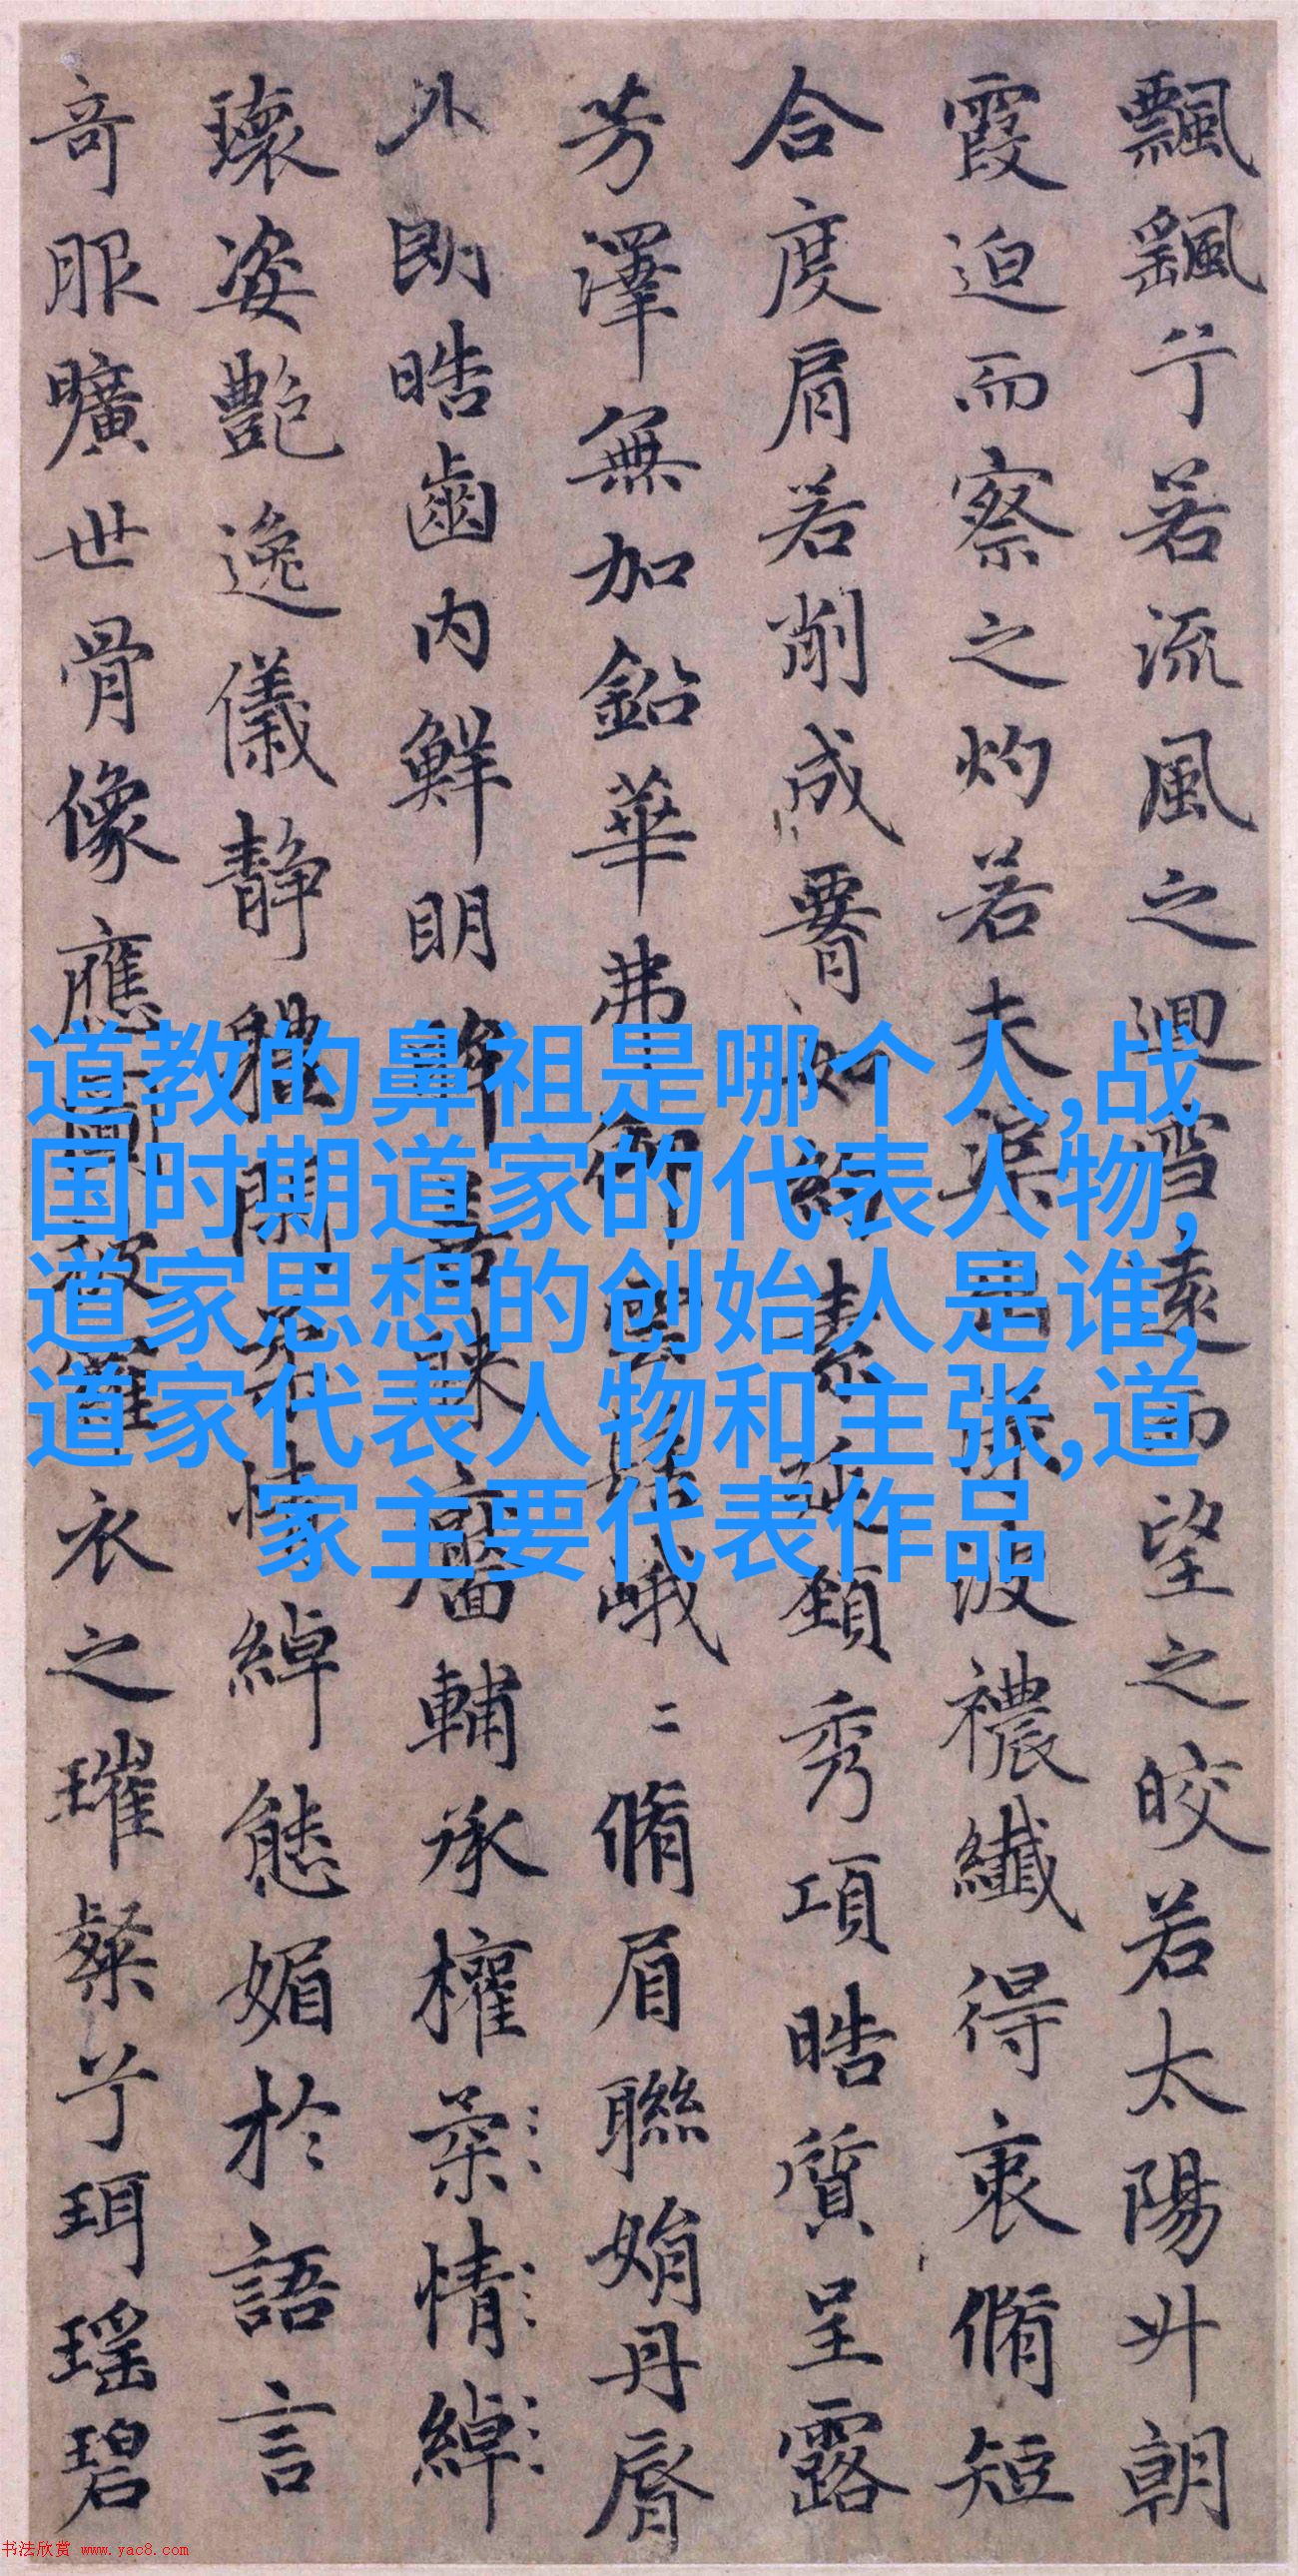 飄飖兮若流風之迴雪遠而望之皎若太陽升朝
霞迫而察之灼若夫渠出淥波襛纖得衷脩短
合度肩若削成要如約素延頸秀項皓質呈露
芳澤無加鉛華弗御雲髻峨二脩眉聯娟丹脣
外朗皓齒内鮮明眸善睞靨輔承權柔情綽
瓌姿艷逸儀静體閑柔情綽態媚於語言
奇服曠世骨像應圖披羅衣之璀粲兮珥瑶碧
道教的鼻祖是哪个人,战
国时期道家的代表人物,
道家思想的创始人是谁,
道家代表人物和主张,道
家主要代表作品
书法欣赏 www.yac8.com